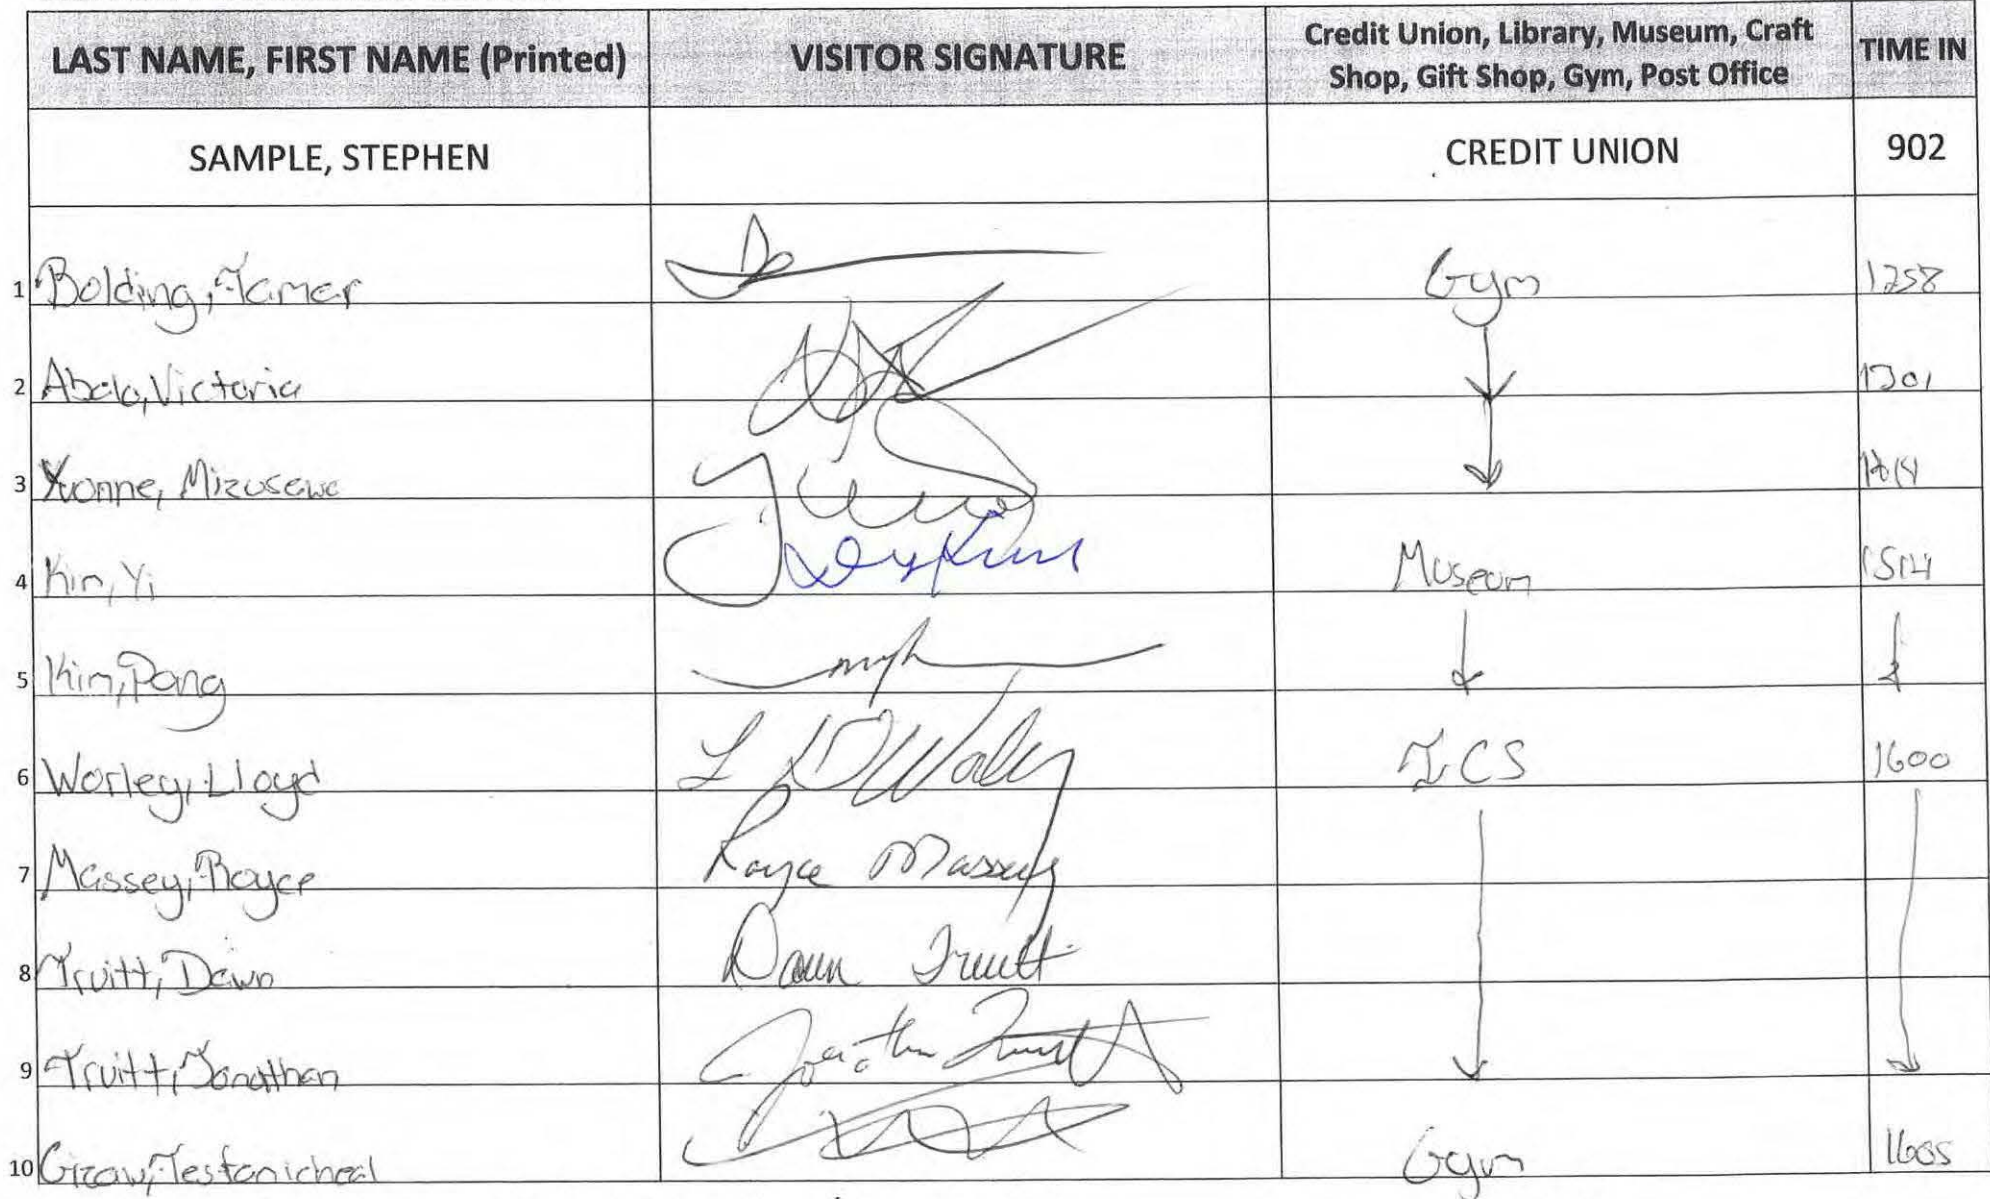 LAST NAME, FIRST NAME (Printed) VISITOR SIGNATURE Credit Union, Library, Museum, Craft Shop, Gift Shop, Gym, Post Office TIME IN
SAMPLE, STEPHEN CREDIT UNION 902
1 Bolding, Tamer Gym 1258
2 Victoria 1301
3 Yvonne,
4 Kim, Yi Museum 1514
5 Kim, Pong
6 Worley, Lloyd L D Worley ICS 1600
7 Massey, Royce Royce Massey
8 Truitt, Dawn Dawn Truitt
9 Truitt, Jonathan Jonathan Truitt
10 Gym 1605